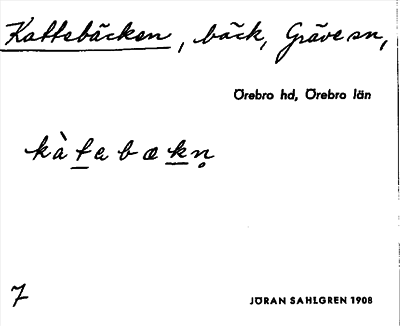 Kattebäcken, bäck, Gräve sn,
Örebro hd, Örebro län
kàtebækn̥
7
JÖRAN SAHLGREN 1908